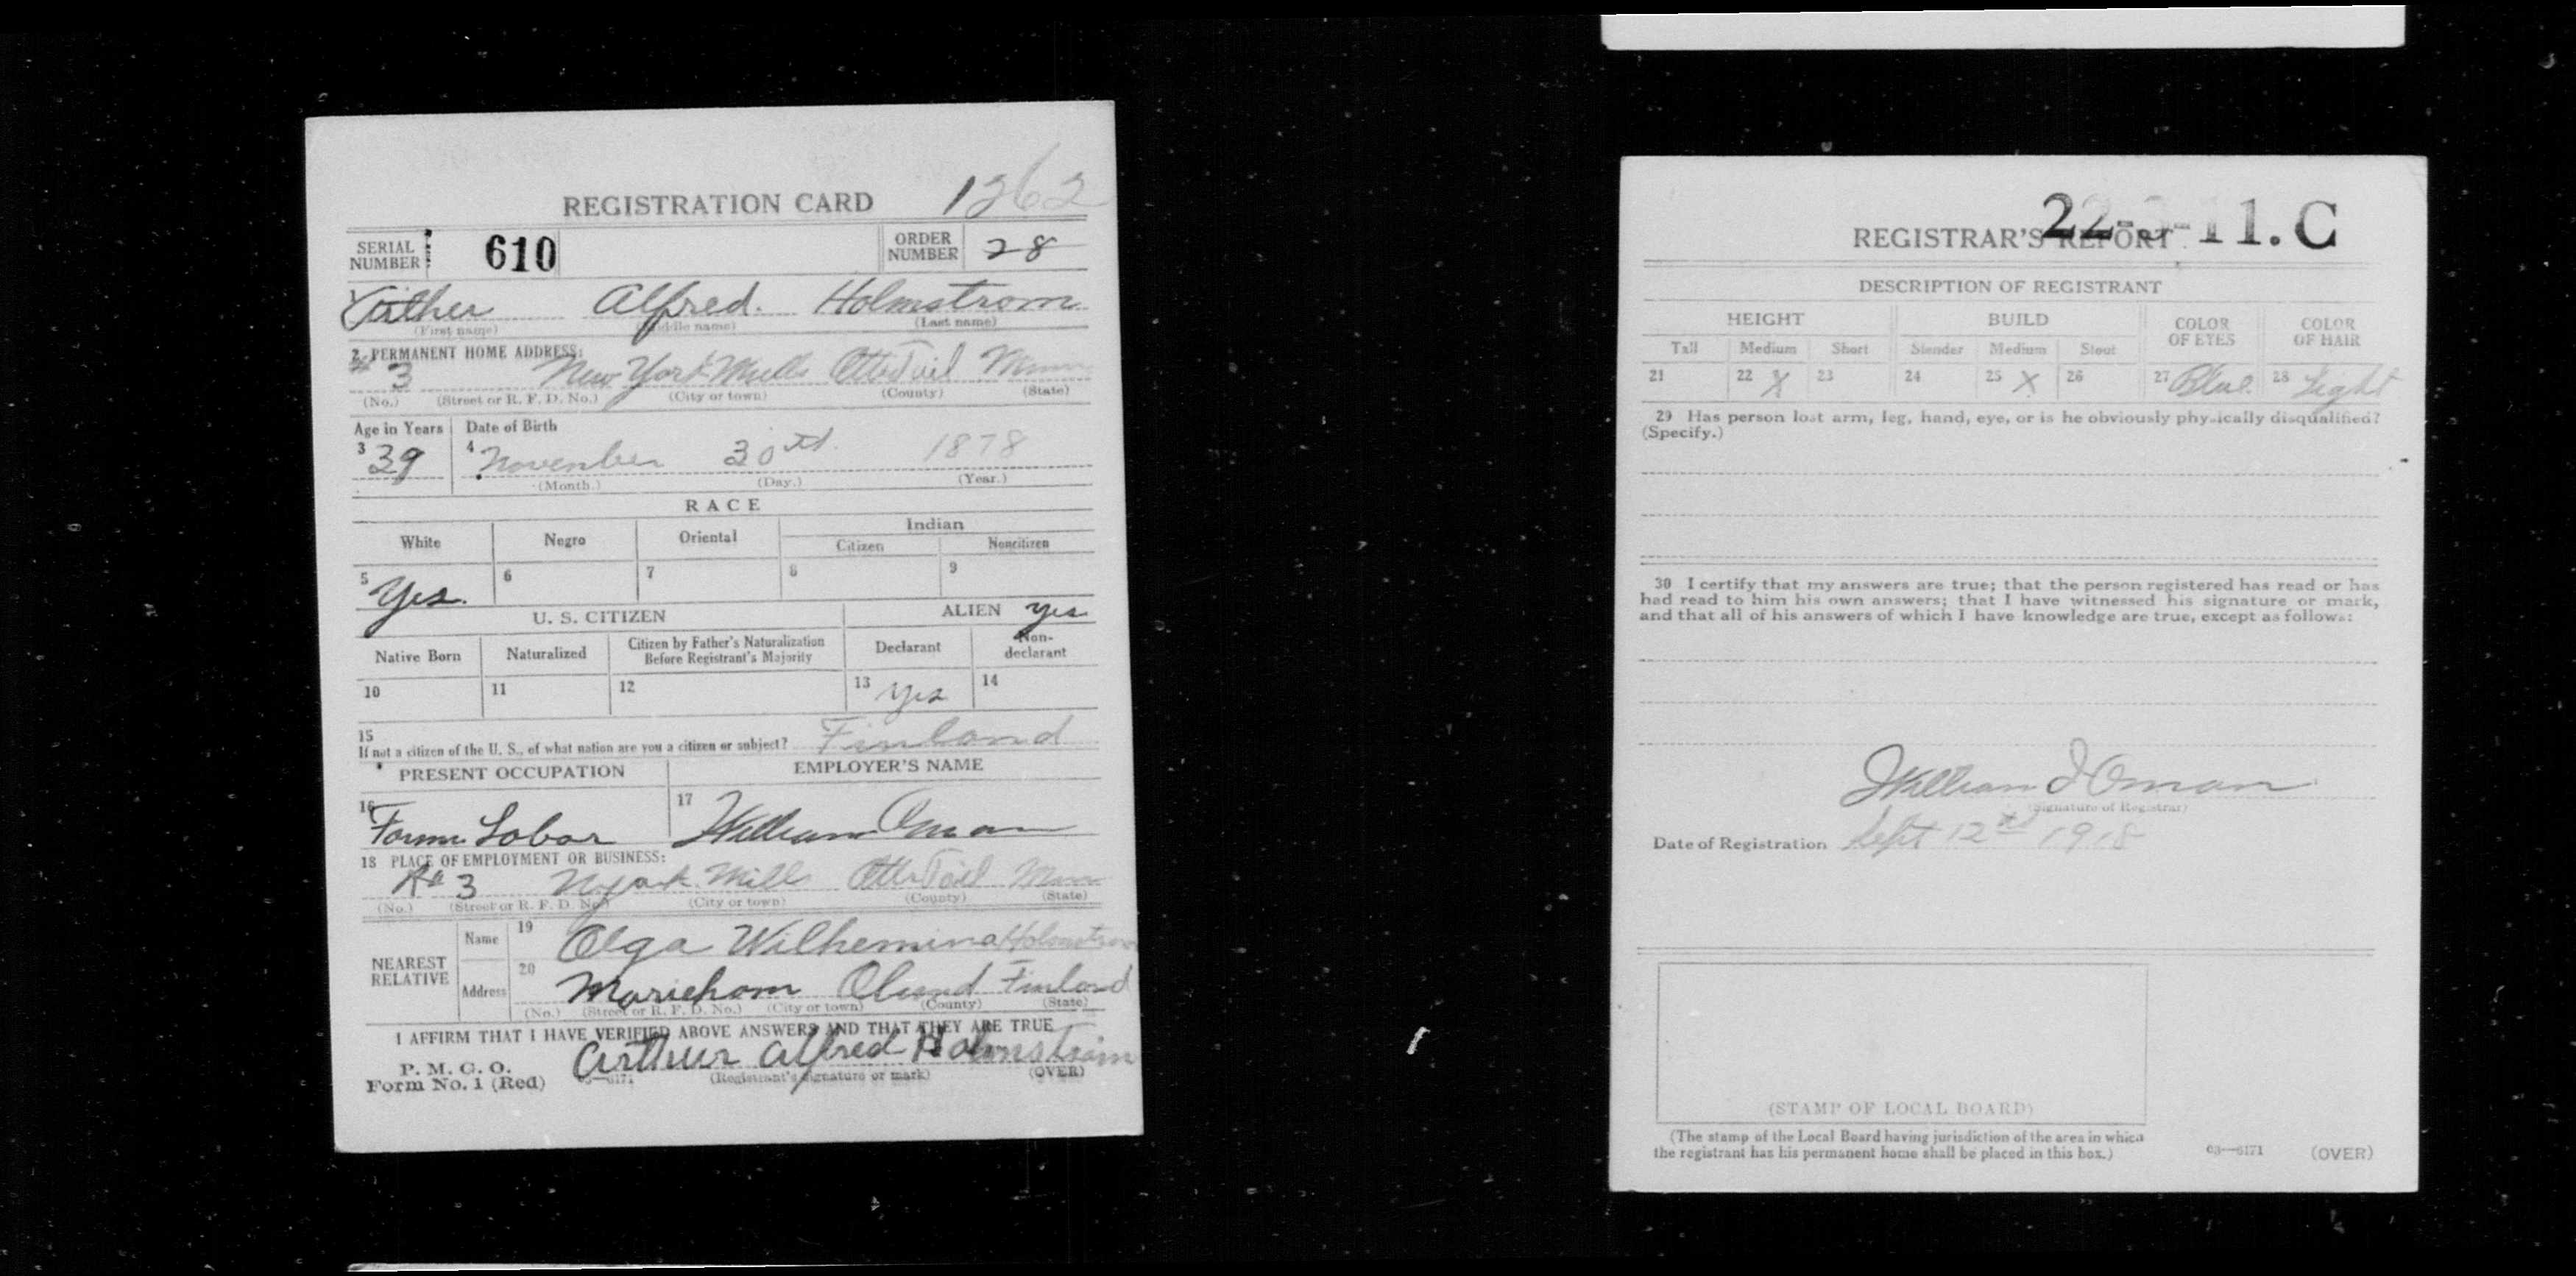 REGISTRATION CARD 1262
SERIAL NUMBER 610 ORDER NUMBER 28
1 Arther Alfred. Holmstrom
(First name) (Middle name) (Last name)
2 PERMANENT HOME ADDRESS:
# 3 New York Mills OtterTail Minn
(No.) (Street or R. F. D. No.) (City or town) (County) (State)
Age in Years Date of Birth
3 39 4 November 30th 1878
(Month.) (Day.) (Year.)
RACE
White Negro Oriental Indian
Citizen Noncitizen
5 Yes. 6 7 8 9
U. S. CITIZEN ALIEN yes
Native Born Naturalized Citizen by Father's Naturalization Before Registrant's Majority Declarant Non-declarant
10 11 12 13 yes 14
15 If not a citizen of the U. S., of what nation are you a citizen or subject? Finland
PRESENT OCCUPATION EMPLOYER'S NAME
16 Farm Labor 17 William Oman
18 PLACE OF EMPLOYMENT OR BUSINESS:
R# 3 N york Mill OtterTail Minn
(No.) (Street or R. F. D. No.) (City or town) (County) (State)
NEAREST RELATIVE Name 19 Olga Wilhemina Holmstrom
Address 20 Mariehom Oland Finland
(No.) (Street or R. F. D. No.) (City or town) (County) (State)
I AFFIRM THAT I HAVE VERIFIED ABOVE ANSWERS AND THAT THEY ARE TRUE
P. M. G. O.
Form No. 1 (Red) Arthur Alfred Holmström
03—6171 (Registrant's signature or mark) (OVER)
22-3-11.C
REGISTRAR'S REPORT
DESCRIPTION OF REGISTRANT
HEIGHT BUILD COLOR OF EYES COLOR OF HAIR
Tall Medium Short Slender Medium Stout
21 22 X 23 24 25 X 26 27 Blue 28 Light
29 Has person lost arm, leg, hand, eye, or is he obviously physically disqualified?
(Specify.)
30 I certify that my answers are true; that the person registered has read or has
had read to him his own answers; that I have witnessed his signature or mark,
and that all of his answers of which I have knowledge are true, except as follows:
William J Oman
(Signature of Registrar)
Date of Registration Sept 12th 1918
(STAMP OF LOCAL BOARD)
(The stamp of the Local Board having jurisdiction of the area in which
the registrant has his permanent home shall be placed in this box.)
03—6171 (OVER)